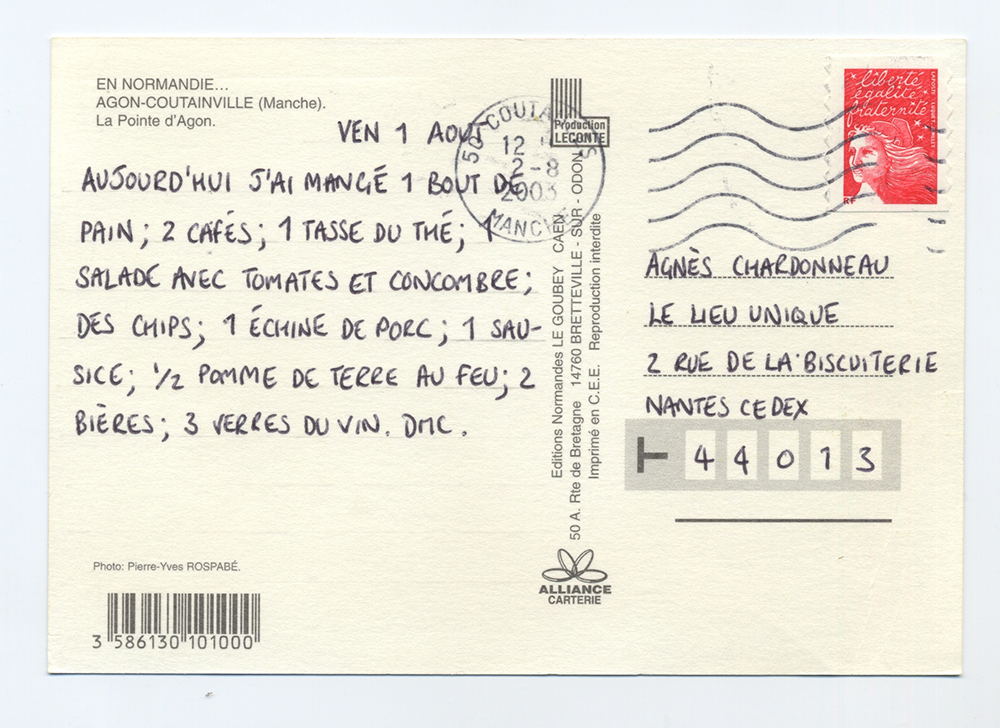 EN NORMANDIE...
AGON-COUTAINVILLE (Manche).
La Pointe d'Agon.
VEN 1 AOUT
AUJOURD'HUI J'AI MANGÉ 1 BOUT DE
PAIN; 2 CAFÉS; 1 TASSE DU THÉ; 1
SALADE AVEC TOMATES ET CONCOMBRE;
DES CHIPS; 1 ÉCHINE DE PORC; 1 SAU-
SICE; 1/2 POMME DE TERRE AU FEU; 2
BIÈRES; 3 VERRES DU VIN. DMC.
Photo: Pierre-Yves ROSPABÉ.
3 586130 101000
Production
LECONTE
12
2-8
2003
MANCHE
Editions Normandes LE GOUBEY CAEN
50 A. Rte de Bretagne 14760 BRETTEVILLE - SUR - ODON
Imprimé en C.E.E. Reproduction interdite
ALLIANCE
CARTERIE
liberté
égalité
fraternité
RF
AGNÈS CHARDONNEAU
LE LIEU UNIQUE
2 RUE DE LA BISCUITERIE
NANTES CEDEX
44013